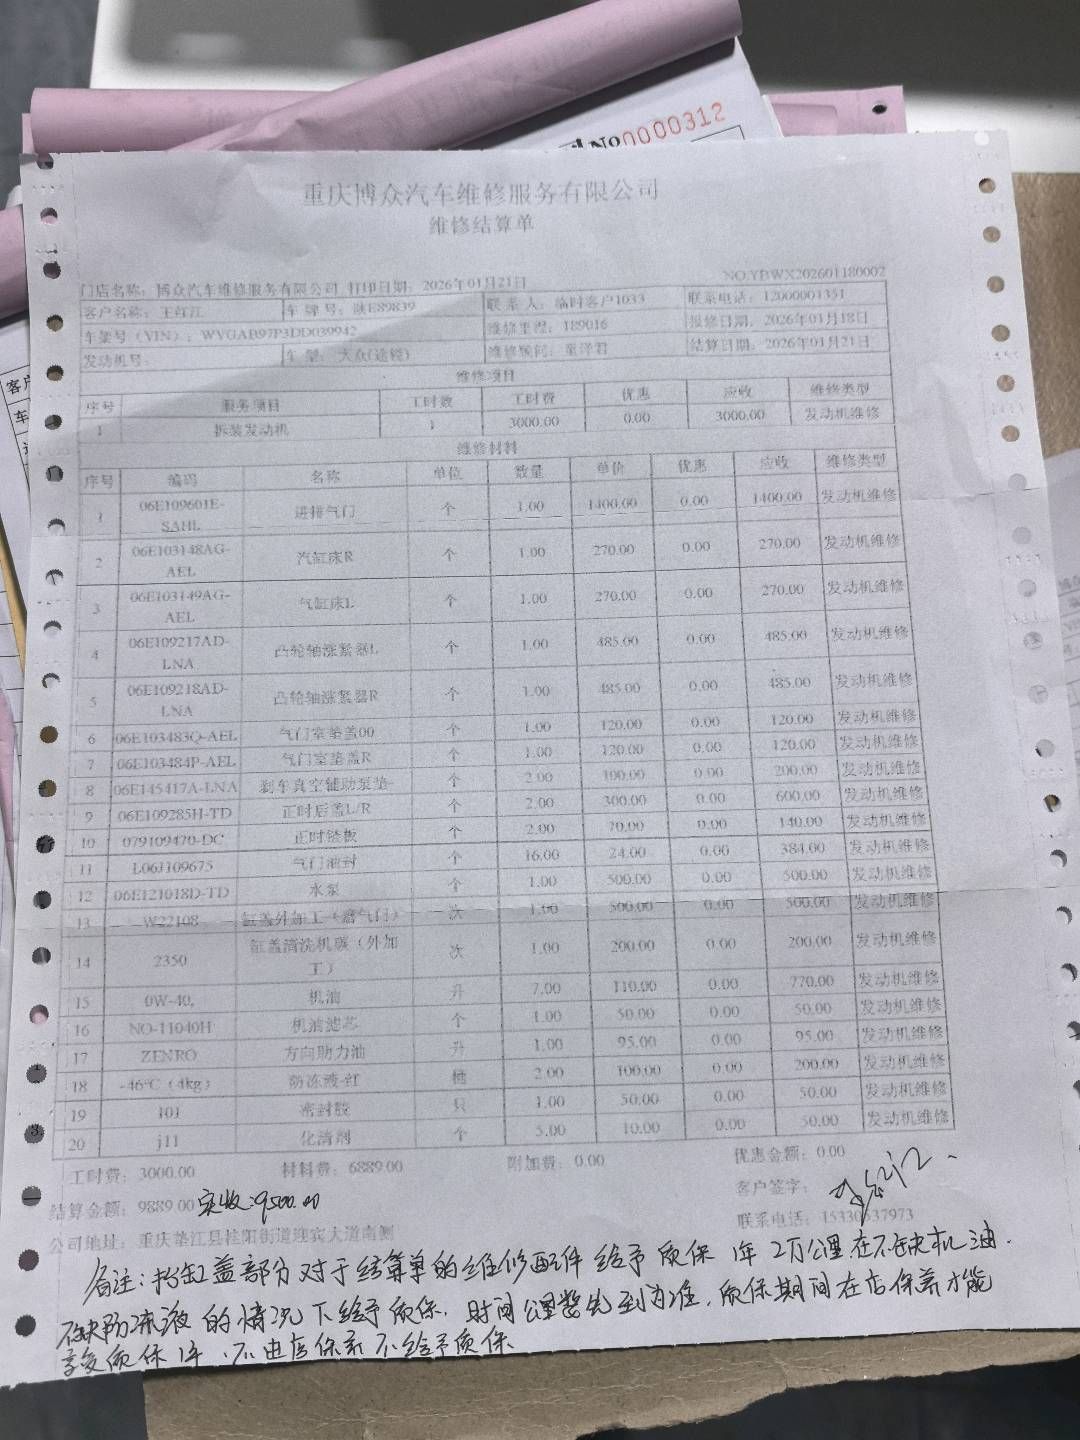 №0000312
重庆博众汽车维修服务有限公司
维修结算单
NO:YBWX202601180002
门店名称: 博众汽车维修服务有限公司 打印日期: 2026年01月21日
客户名称: 王红江 车 牌 号: 陕E89839 联 系 人: 临时客户1033 联系电话: 12000001351
车架号(VIN): WVGAB97P3DD039942 维修里程: 189016 报修日期: 2026年01月18日
发动机号: 车 型: 大众(途锐) 维修顾问: 童泽君 结算日期: 2026年01月21日
维修项目
序号 服务项目 工时数 工时费 优惠 应收 维修类型
1 拆装发动机 1 3000.00 0.00 3000.00 发动机维修
维修材料
序号 编码 名称 单位 数量 单价 优惠 应收 维修类型
1 06E109601E-SAHL 进排气门 个 1.00 1400.00 0.00 1400.00 发动机维修
2 06E103148AG-AEL 汽缸床R 个 1.00 270.00 0.00 270.00 发动机维修
3 06E103149AG-AEL 气缸床L 个 1.00 270.00 0.00 270.00 发动机维修
4 06E109217AD-LNA 凸轮轴涨紧器L 个 1.00 485.00 0.00 485.00 发动机维修
5 06E109218AD-LNA 凸轮轴涨紧器R 个 1.00 485.00 0.00 485.00 发动机维修
6 06E103483Q-AEL 气门室垫盖00 个 1.00 120.00 0.00 120.00 发动机维修
7 06E103484P-AEL 气门室垫盖R 个 1.00 120.00 0.00 120.00 发动机维修
8 06E145417A-LNA 刹车真空辅助泵垫- 个 2.00 100.00 0.00 200.00 发动机维修
9 06E109285H-TD 正时后盖L/R 个 2.00 300.00 0.00 600.00 发动机维修
10 079109470-DC 正时链板 个 2.00 70.00 0.00 140.00 发动机维修
11 L06J109675 气门油封 个 16.00 24.00 0.00 384.00 发动机维修
12 06E121018D-TD 水泵 个 1.00 500.00 0.00 500.00 发动机维修
13 W22108 缸盖外加工(磨气门) 次 1.00 500.00 0.00 500.00 发动机维修
14 2350 缸盖清洗机碳(外加工) 次 1.00 200.00 0.00 200.00 发动机维修
15 0W-40, 机油 升 7.00 110.00 0.00 770.00 发动机维修
16 NO-11040H 机油滤芯 个 1.00 50.00 0.00 50.00 发动机维修
17 ZENRO 方向助力油 升 1.00 95.00 0.00 95.00 发动机维修
18 -46℃(4kg) 防冻液-红 桶 2.00 100.00 0.00 200.00 发动机维修
19 101 密封胶 只 1.00 50.00 0.00 50.00 发动机维修
20 j11 化清剂 个 5.00 10.00 0.00 50.00 发动机维修
工时费: 3000.00 材料费: 6889.00 附加费: 0.00 优惠金额: 0.00
结算金额: 9889.00 实收:9500.00 客户签字:
公司地址: 重庆垫江县桂阳街道迎宾大道南侧 联系电话: 15330537973
备注:抬缸盖部分对于结算单的维修配件给予质保1年2万公里在不缺机油.
不缺防冻液的情况下给予质保.时间公里数先到为准.质保期间在店保养才能
享受质保1年,不由店保养不给予质保